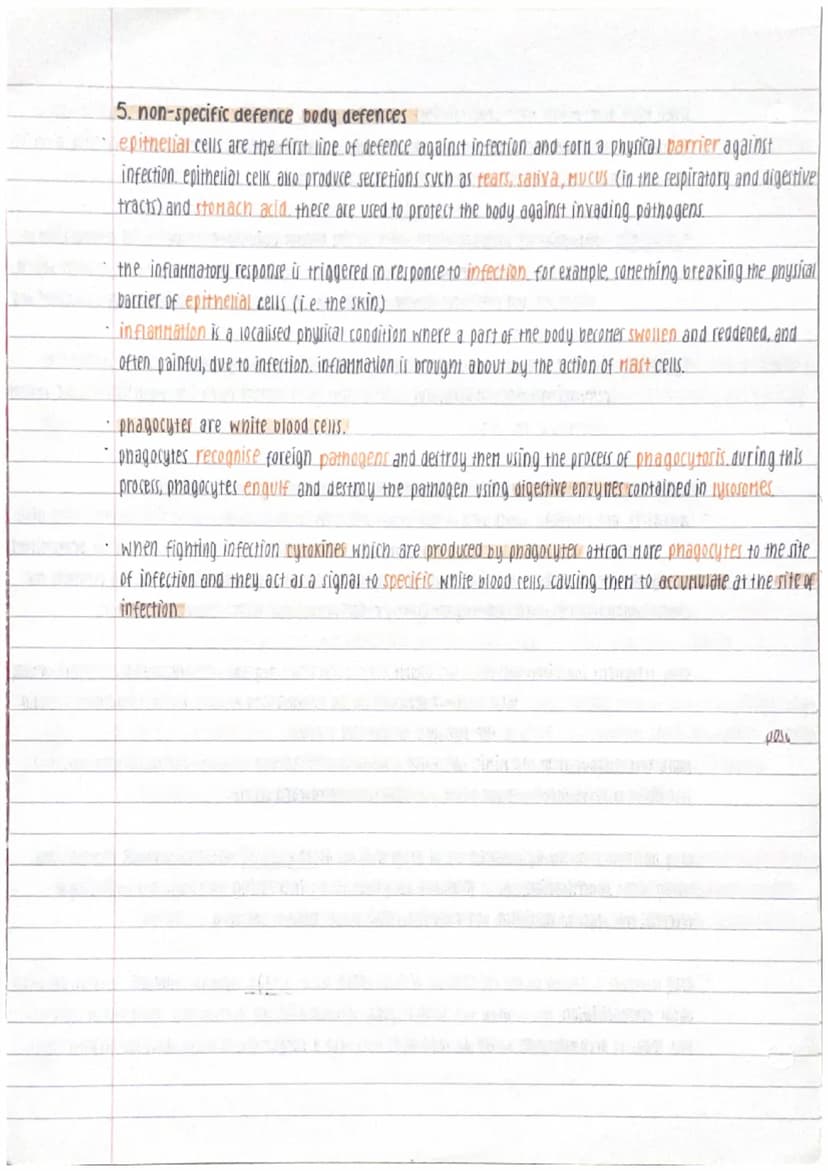 5. non-specific defence body defences
· epithelial cells are the first line of defence against infection and form a physical barrier against
infection. epithelial cells also produce secretions such as tears, saliva, mucus (in the respiratory and digestive
tracts) and stomach acid. these are used to protect the body against invading pathogens.
· the inflammatory response is triggered in response to infection. for example, something breaking the physical
barrier of epithelial cells (i.e. the skin)
· inflammation is a localised physical condition where a part of the body becomes swollen and reddened, and
often painful, due to infection. inflammation is brought about by the action of mast cells.
· phagocytes are white blood cells.
· phagocytes recognise foreign pathogens and destroy them using the process of phagocytosis. during this
process, phagocytes engulf and destroy the pathogen using digestive enzymes contained in lysosomes.
· when fighting infection cytokines which are produced by phagocytes attract more phagocytes to the site
of infection and they act as a signal to specific white blood cells, causing them to accumulate at the site of
infection.